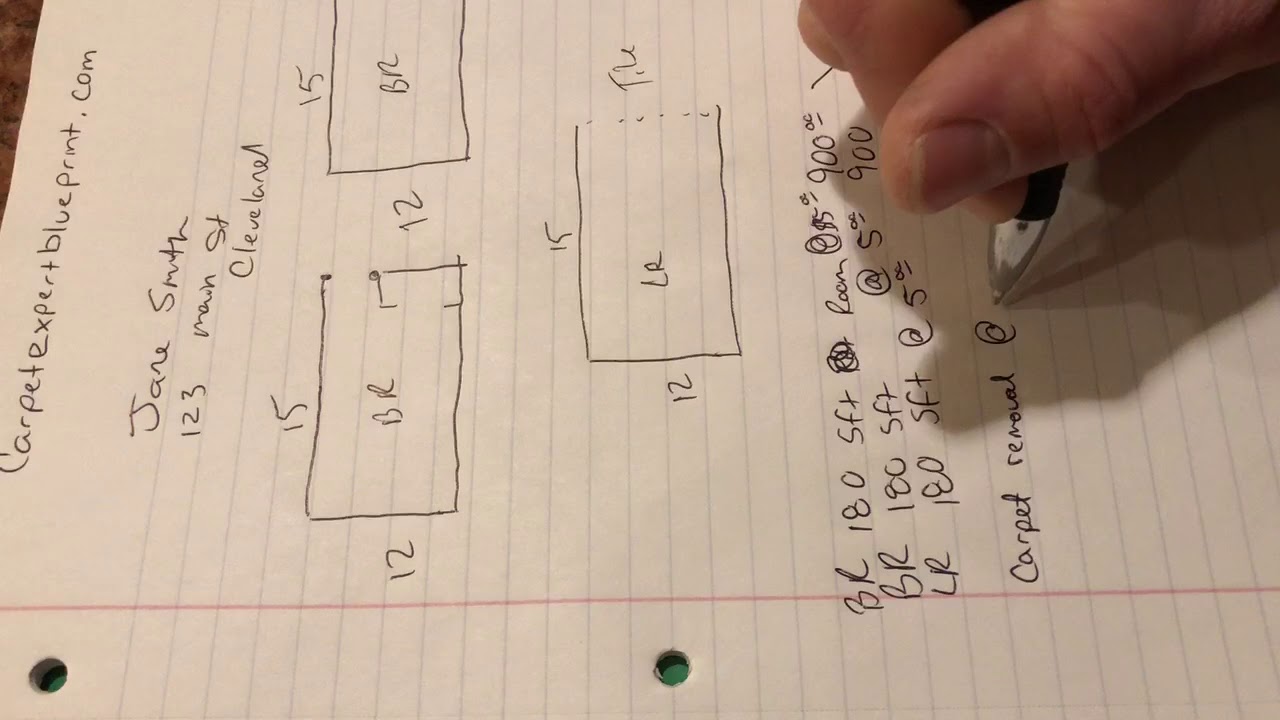 Carpetexpertblueprint.com
Jane Smith
123 main St
Cleveland
15
BR
12
15
BR
12
15
LR
Tile
12
BR 180 Sft Room @ 5.00 900.00
BR 180 Sft @ 5.00 900
LR 180 Sft @ 5.00
Carpet removal @